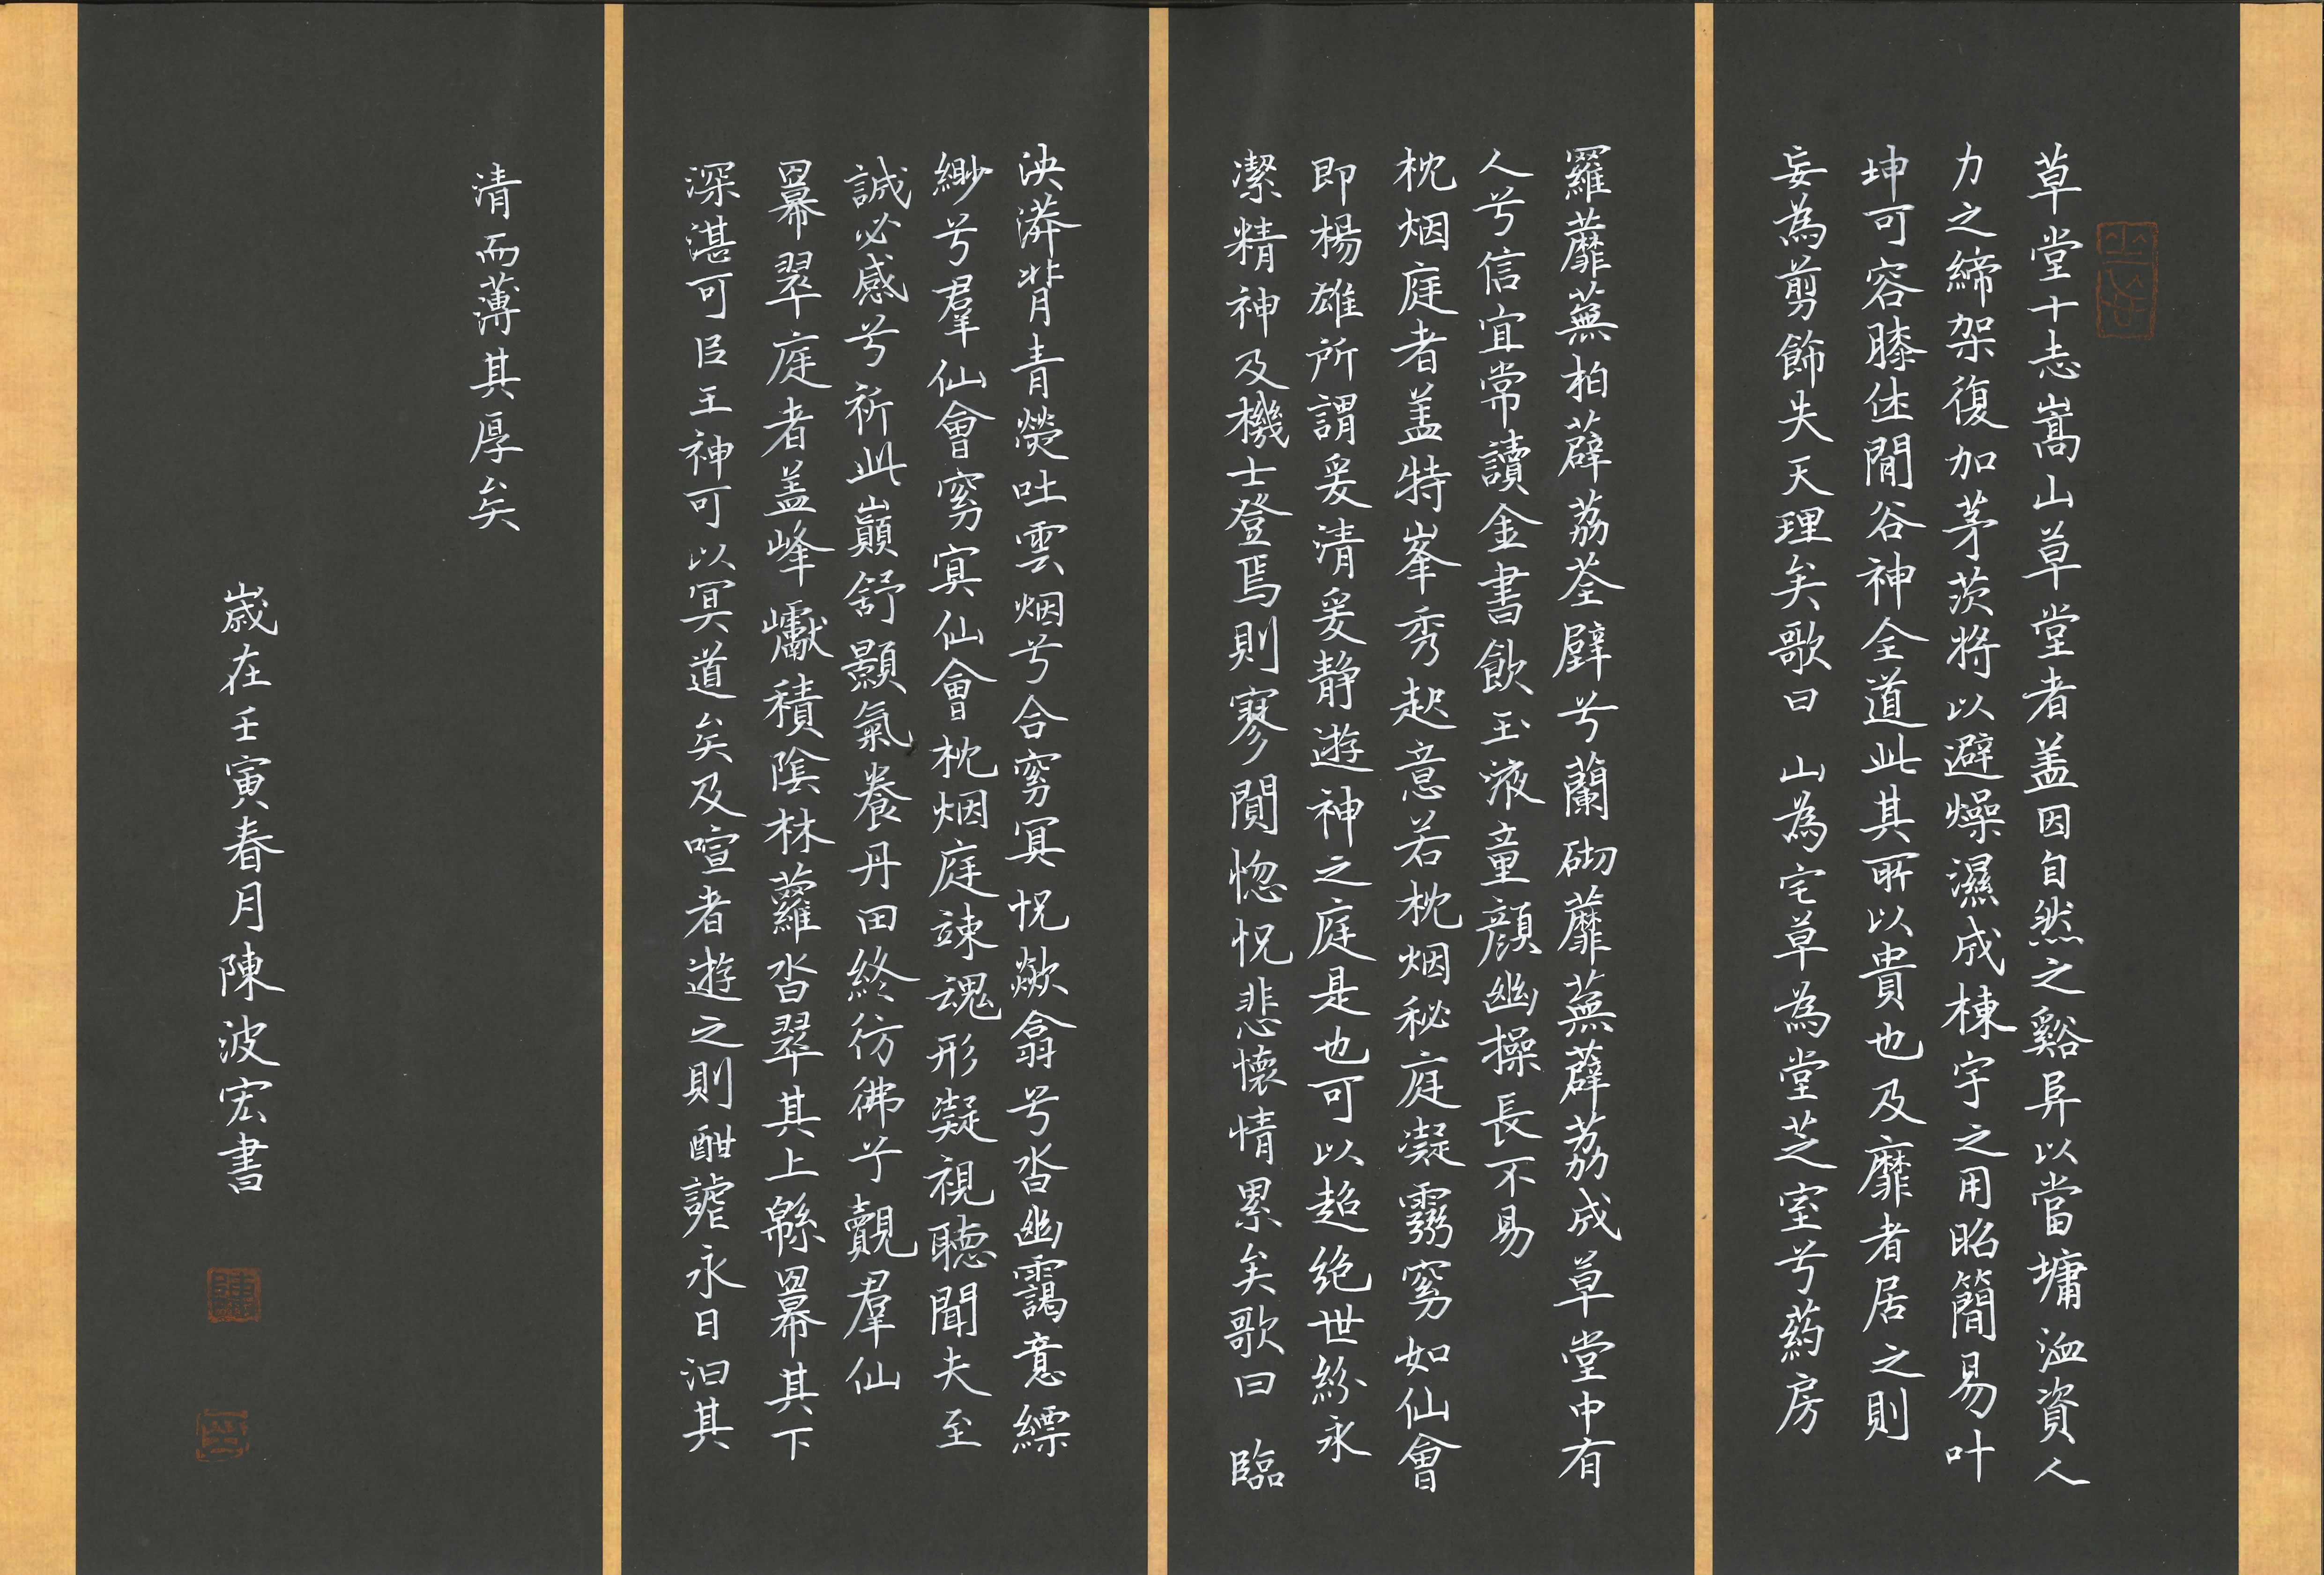 草堂十志嵩山草堂者盖因自然之谿阜以當墉洫資人
力之締架復加茅茨將以避燥濕成棟宇之用昭簡易叶
坤可容膝休閒谷神全道此其所以貴也及靡者居之則
妄為剪飾失天理矣歌曰 山為宅草為堂芝室兮葯房
羅蘼蕪柏薜荔荃壁兮蘭砌蘼蕪薜荔成草堂中有
人兮信宜常讀金書飲玉液童顔幽操長不易
枕烟庭者盖特峯秀起意若枕烟秘庭凝霛窈如仙會
即楊雄所謂爰清爰靜遊神之庭是也可以超絶世紛永
潔精神及機士登焉則寥閴惚怳悲懷情累矣歌曰 臨
泱漭背青熒吐雲烟兮合窈冥怳歘翕兮沓幽靄意縹
緲兮羣仙會窈冥仙會枕烟庭竦魂形凝視聽聞夫至
誠必感兮祈此巔舒顥氣養丹田終仿彿兮覿羣仙
冪翠庭者盖峰巘積陰林蘿沓翠其上緜冪其下
深湛可臣王神可以冥道矣及喧者遊之則酣謔永日汩其
清而薄其厚矣
歲在壬寅春月陳波宏書